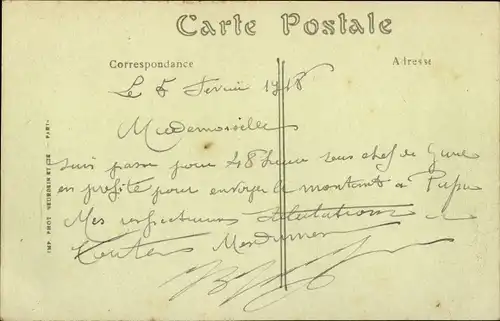 Carte Postale
Correspondance
Adresse
Le 5 Février 1918
Mademoiselle
suis passé pour 48 heures sous chef de Gare
en profite pour envoyer le montant à
Mes respectueuses Salutations
Toutes Mesdames
IMP. PHOT. NEURDEIN ET CIE. — PARIS